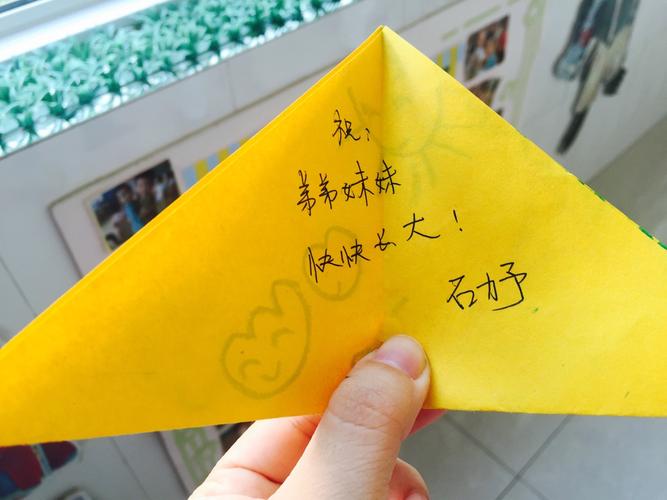 祝,
弟弟妹妹
快快长大!
石力予